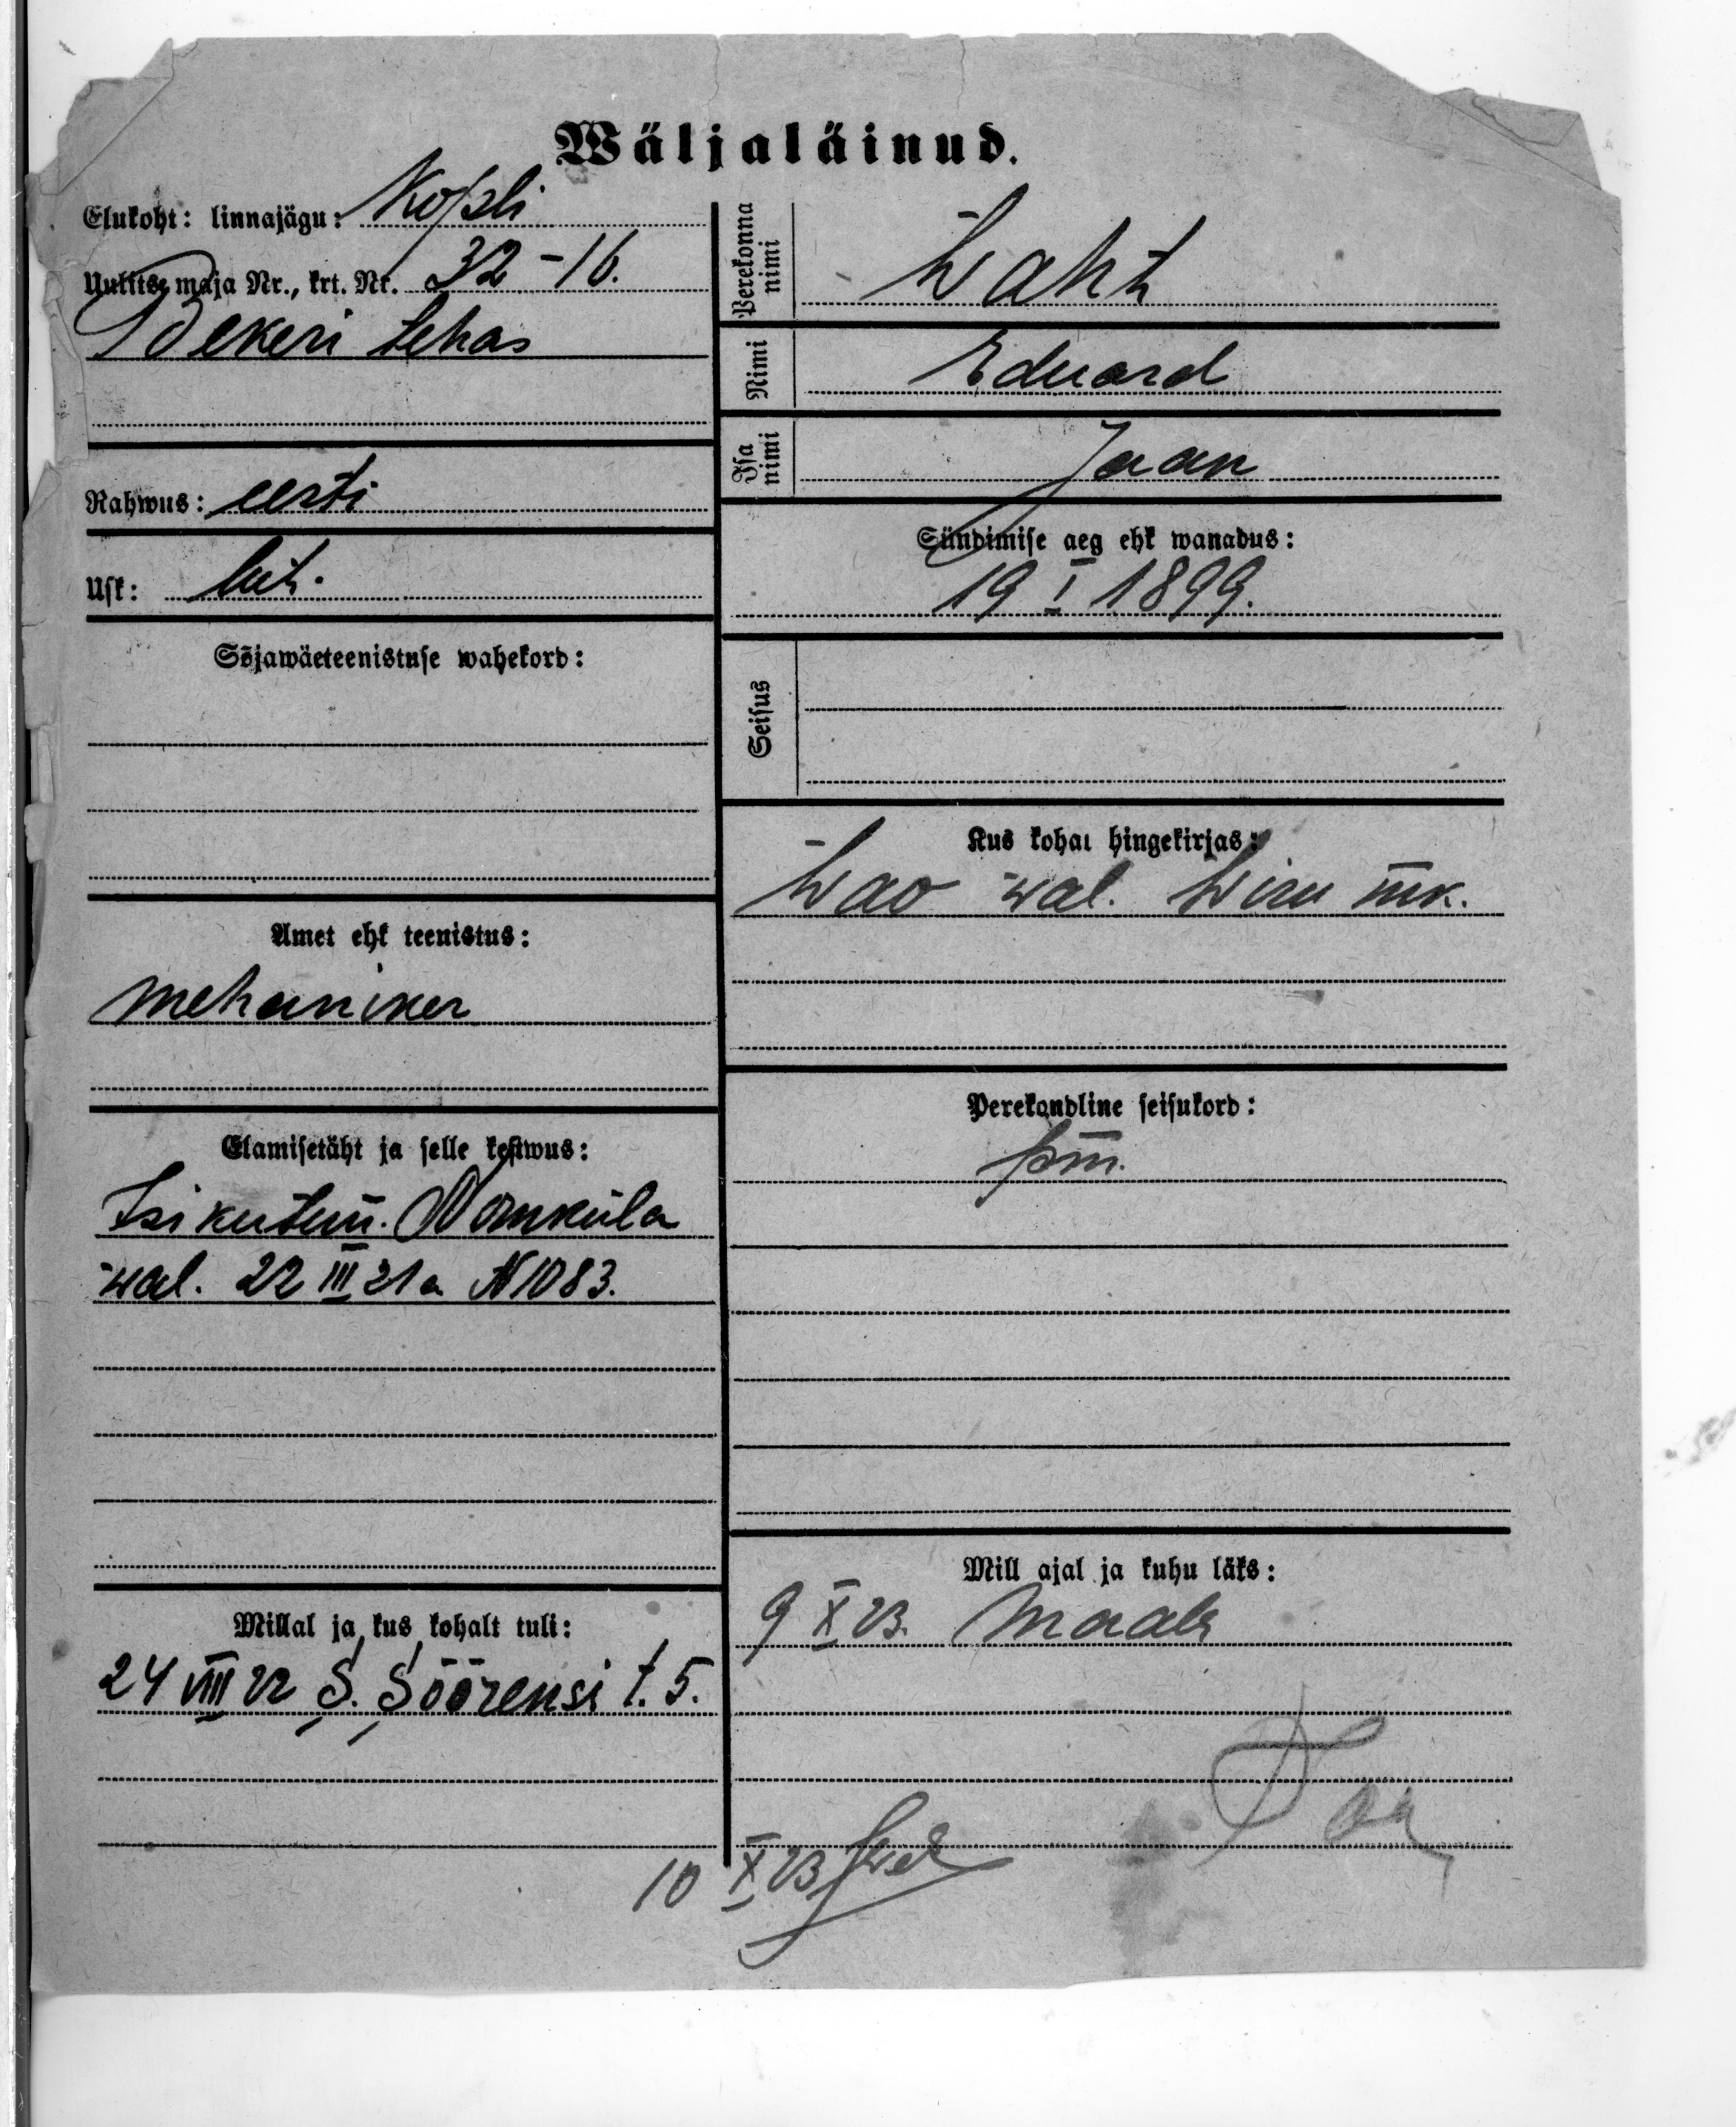 Wäljaläinud.
Elukoht: linnajägu: Kopli
Uulits, maja Nr., krt. Nr. 32-16.
Bekeri tehas
Rahwus: eesti
Usk: lut.
Sõjawäeteenistuse wahekord:
Amet ehk teenistus:
mehaniker
Elamisetäht ja selle kestwus:
Isikutun.
wal. 22 III 21 a N 1083.
Millal ja kus kohalt tuli:
24 VIII 22 S. Söörensi t. 5.
Perekonna nimi Waht
Nimi Eduard
Isa nimi Jaan
Sündimise aeg ehk wanadus:
19 I 1899.
Seisus
Kus kohal hingekirjas:
Wao wal. Wiru mk.
Perekondline seisukord:
Mill ajal ja kuhu läks:
9 X 23. Maale
10 X 23